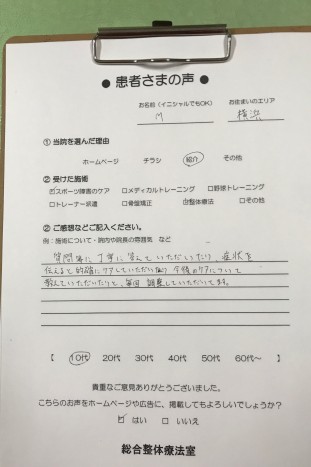 ● 患者さまの声 ●
お名前(イニシャルでもOK) お住まいのエリア
川 横浜
① 当院を選んだ理由
ホームページ チラシ 紹介 その他
② 受けた施術
☑スポーツ障害のケア □メディカルトレーニング □野球トレーニング
□トレーナー派遣 □骨盤矯正 ☑整体療法 □その他
② ご感想などご記入ください。
例:施術について・院内や院長の雰囲気 など
質問等に丁寧に答えていただいたり、症状を
伝えると的確にケアしていただいたり 今後のケアについて
教えていただいたりと、毎回 調整していただいてます。
【 10代 20代 30代 40代 50代 60代~ 】
貴重なご意見ありがとうございました。
こちらのお声をホームページや広告に、掲載してもよろしいでしょうか?
☑ はい □ いいえ
総合整体療法室